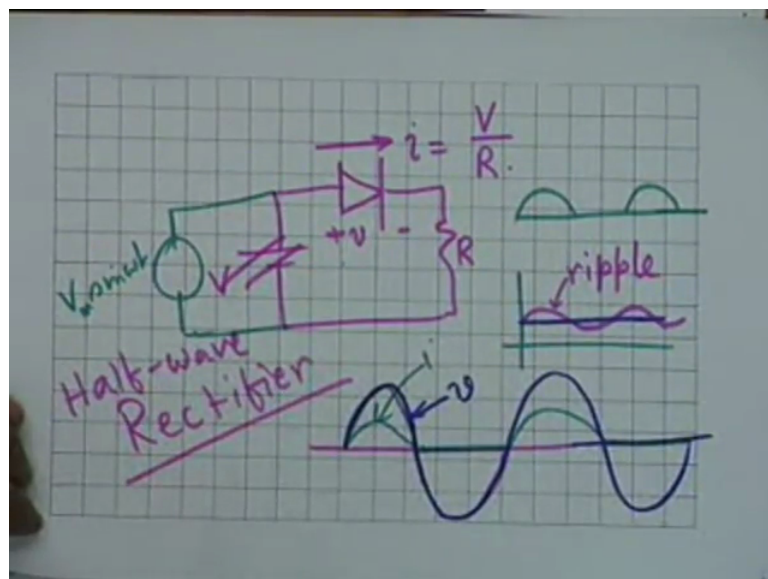 i = V/R.
V_m sin ωt
V
+ v -
R
ripple
Half-wave
Rectifier
i
v